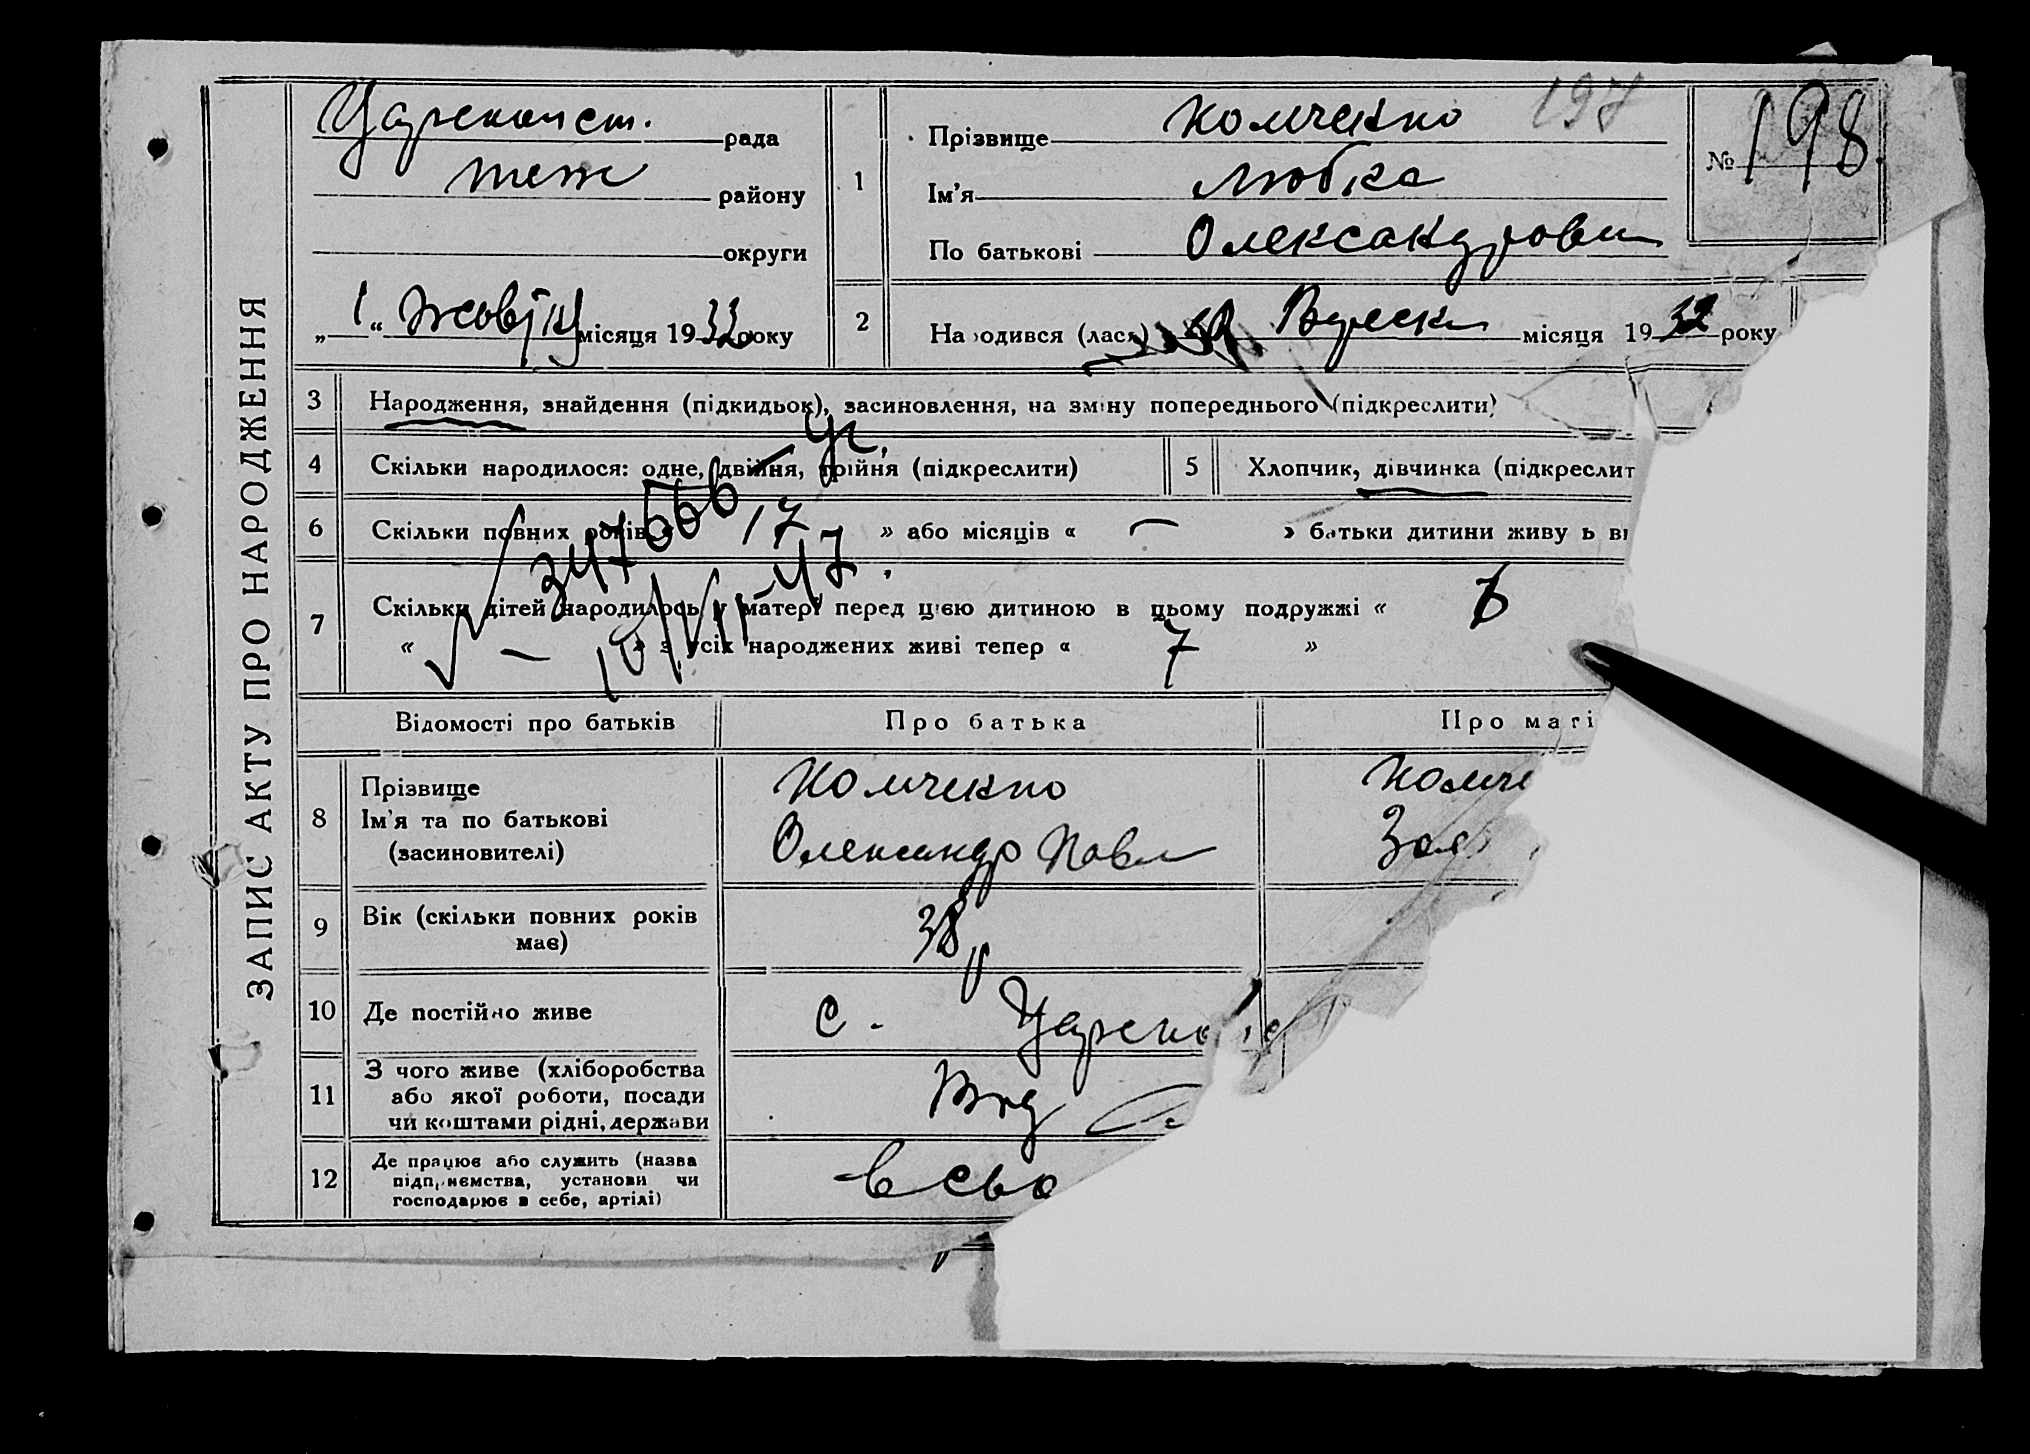 ЗАПИС АКТУ ПРО НАРОДЖЕННЯ
рада
теж району
округи
„ 1 “ місяця 1932 року
1
Прізвище Комченко 197
Ім'я Любка
По батькові Олександровн
№ 198
2
На одився (лася) місяця 1932 року
3 Народження, знайдення (підкидьок), засиновлення, на зміну попереднього (підкреслити)
4 Скільки народилося: одне, двійня, трійня (підкреслити)
5 Хлопчик, дівчинка (підкреслит
6 Скільки повних років « 17 » або місяців « — » батьки дитини живу ь в
7 Скільки дітей народилось у матері перед цією дитиною в цьому подружжі «
« — » з усіх народжених живі тепер « 7 »
Відомості про батьків
Про батька
Про маті
8 Прізвище
Ім'я та по батькові
(засиновителі)
Комченко
Олександр Павл
Комче
9 Вік (скільки повних років
має)
38
10 Де постійно живе
с.
11 З чого живе (хліборобства
або якої роботи, посади
чи коштами рідні, держави
12 Де працює або служить (назва
підприємства, установи чи
господарює в себе, артілі)
в сво